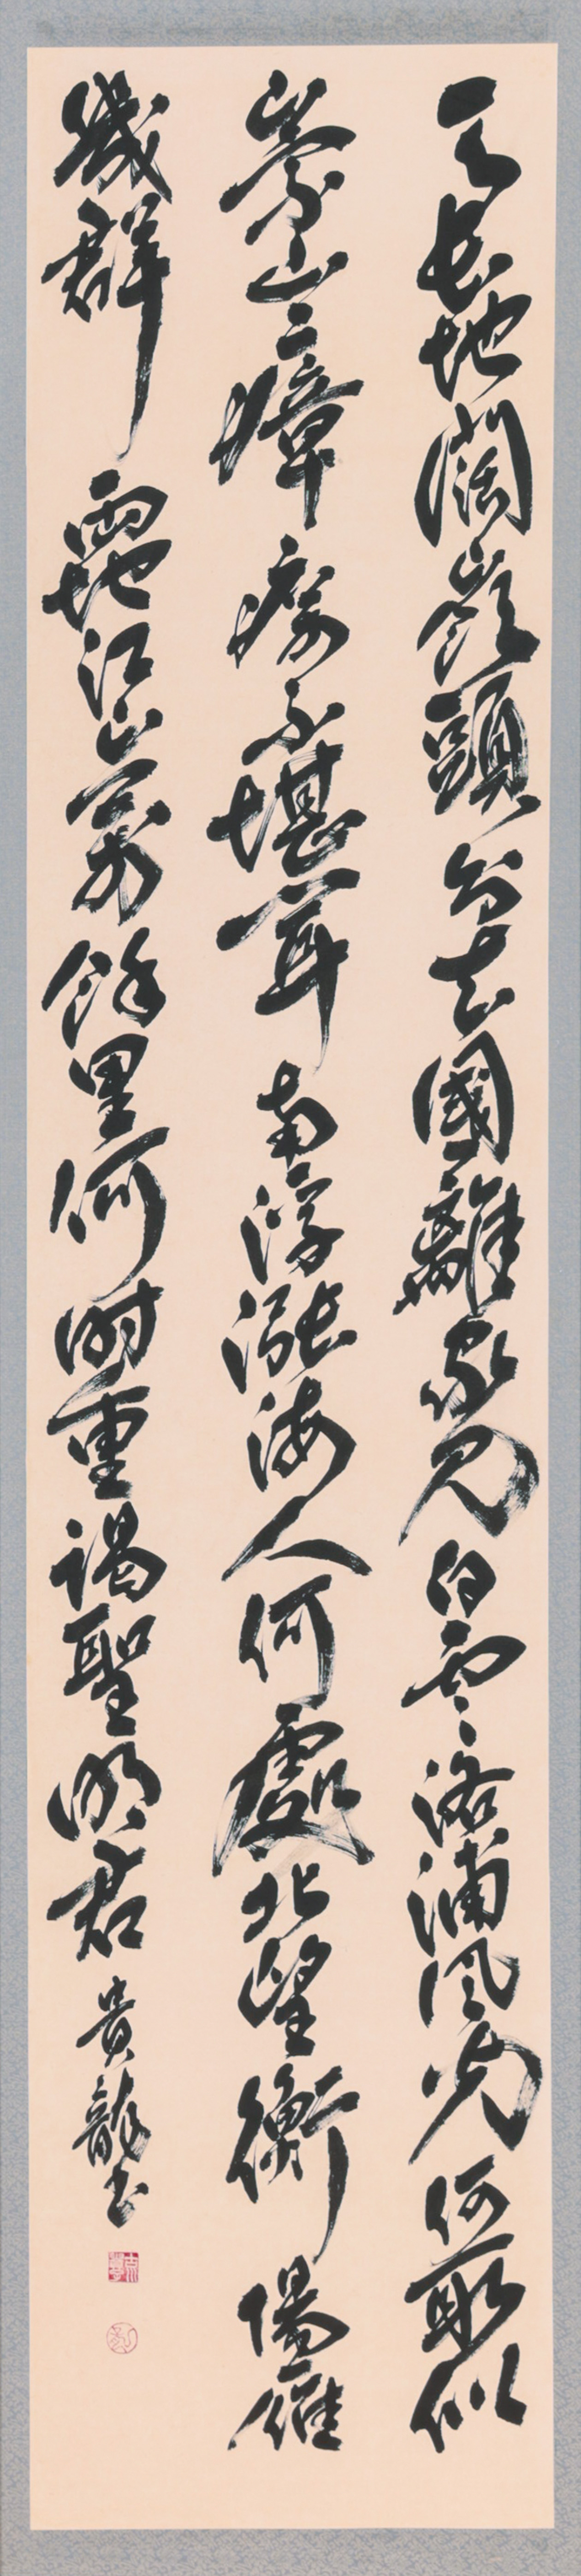 天長地闊嶺頭分去國離家見白雲洛浦風光何所似
崇山瘴癘不堪聞南浮漲海人何處北望衡陽雁
幾群兩地江山萬餘里何時重謁聖明君 貴龍書